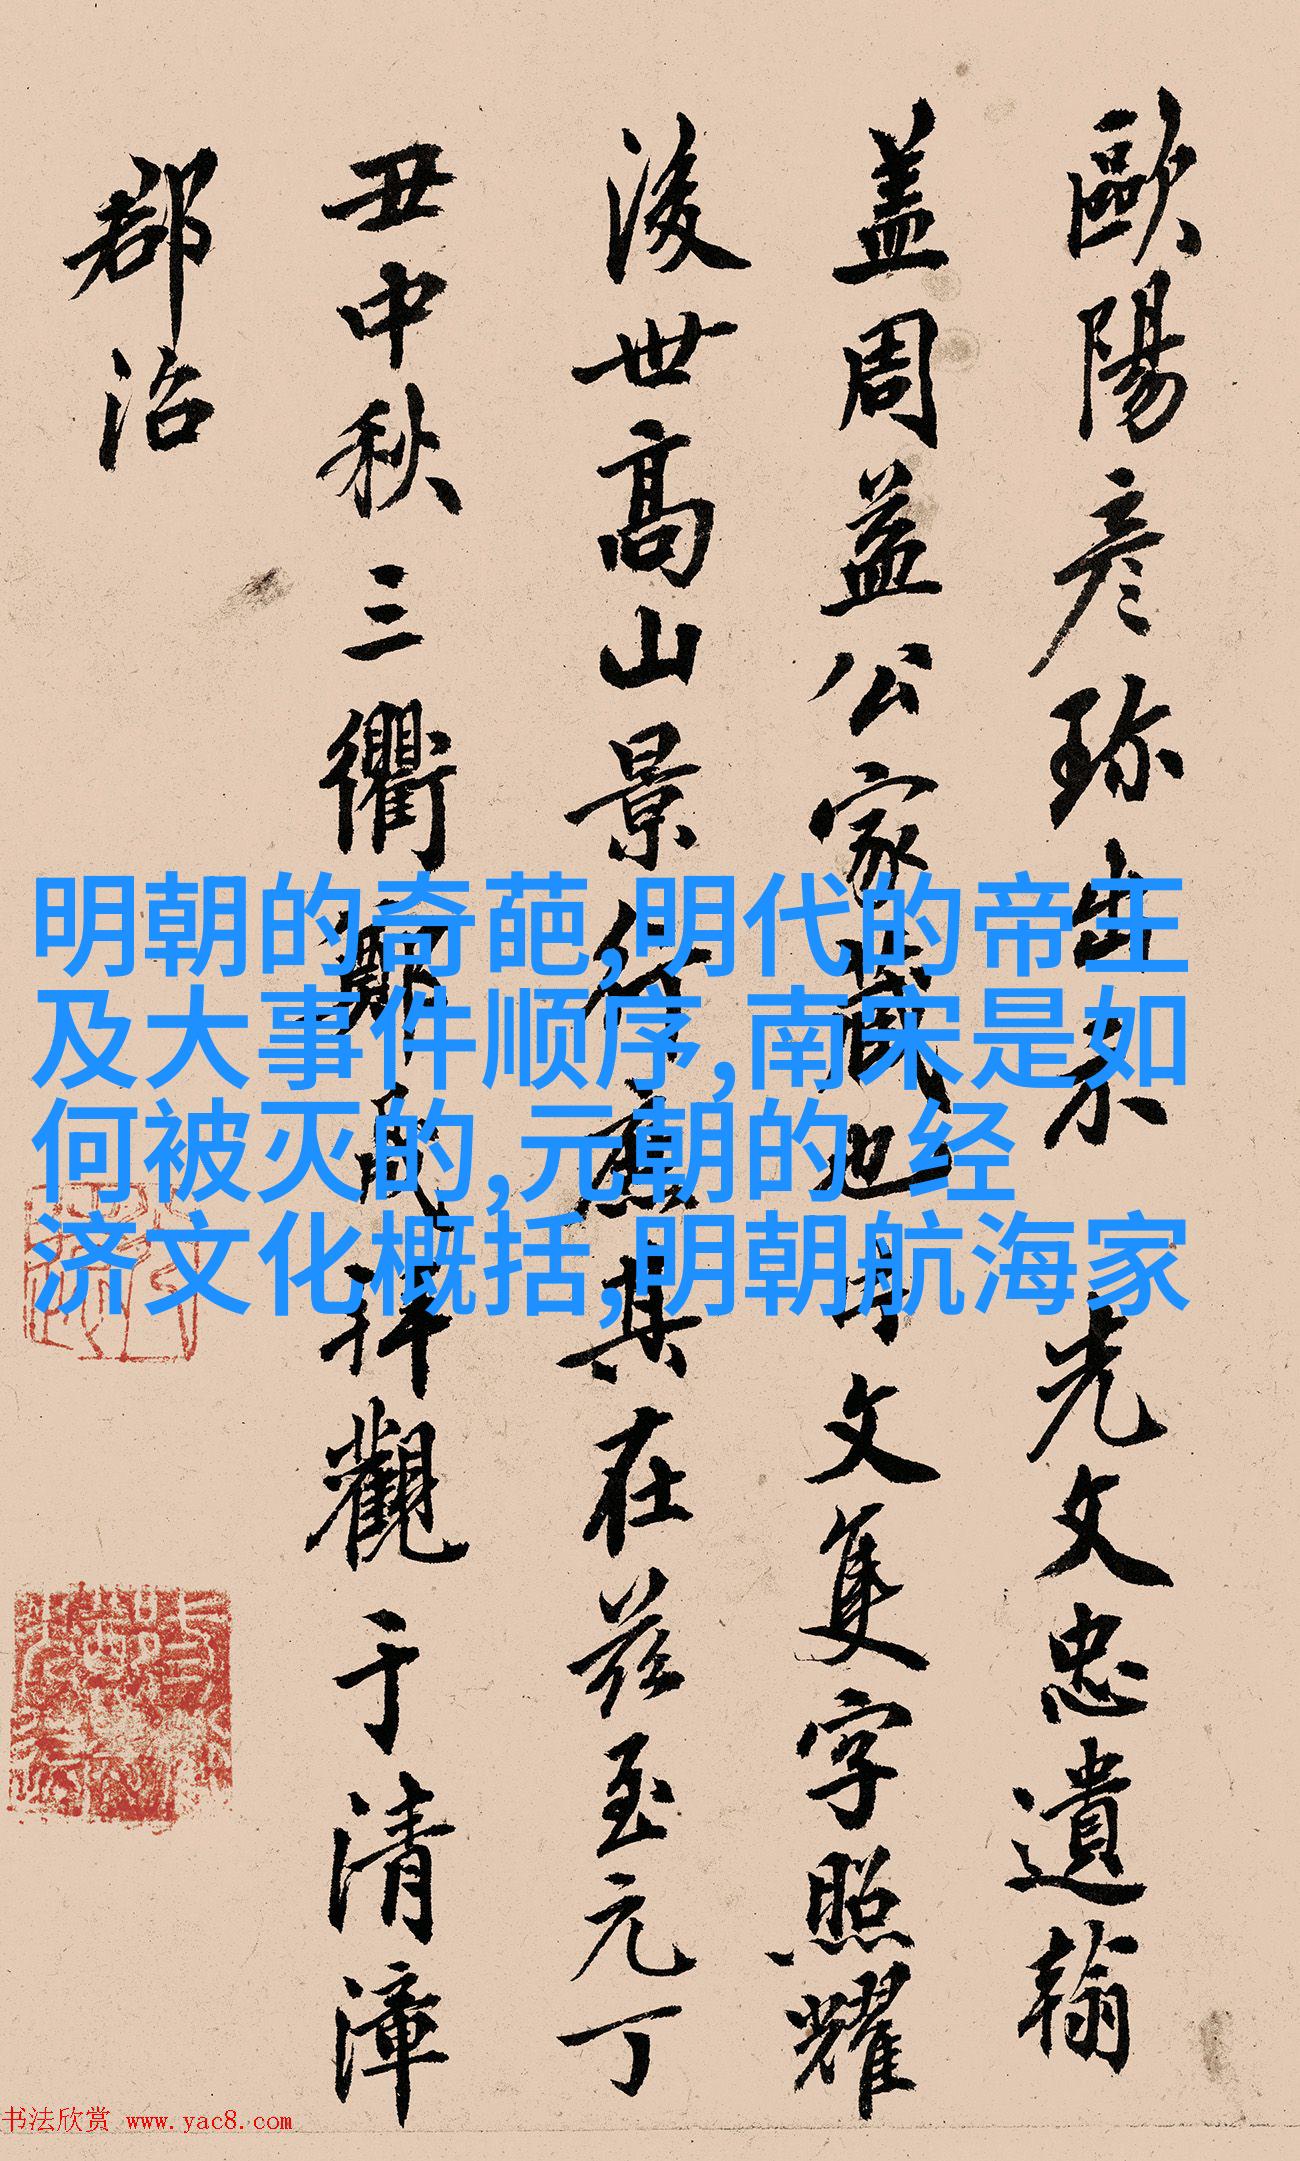 歐陽彦珍出示 先文忠遺翰
盖周益公家藏也片文隻字照耀
後世高山景行 其在兹至元丁
丑中秋三衢鄭 拜觀于清漳
郡治
明朝的奇葩,明代的帝王
及大事件顺序,南宋是如
何被灭的,元朝的 经
济文化概括,明朝航海家
书法欣赏 www.yac8.com